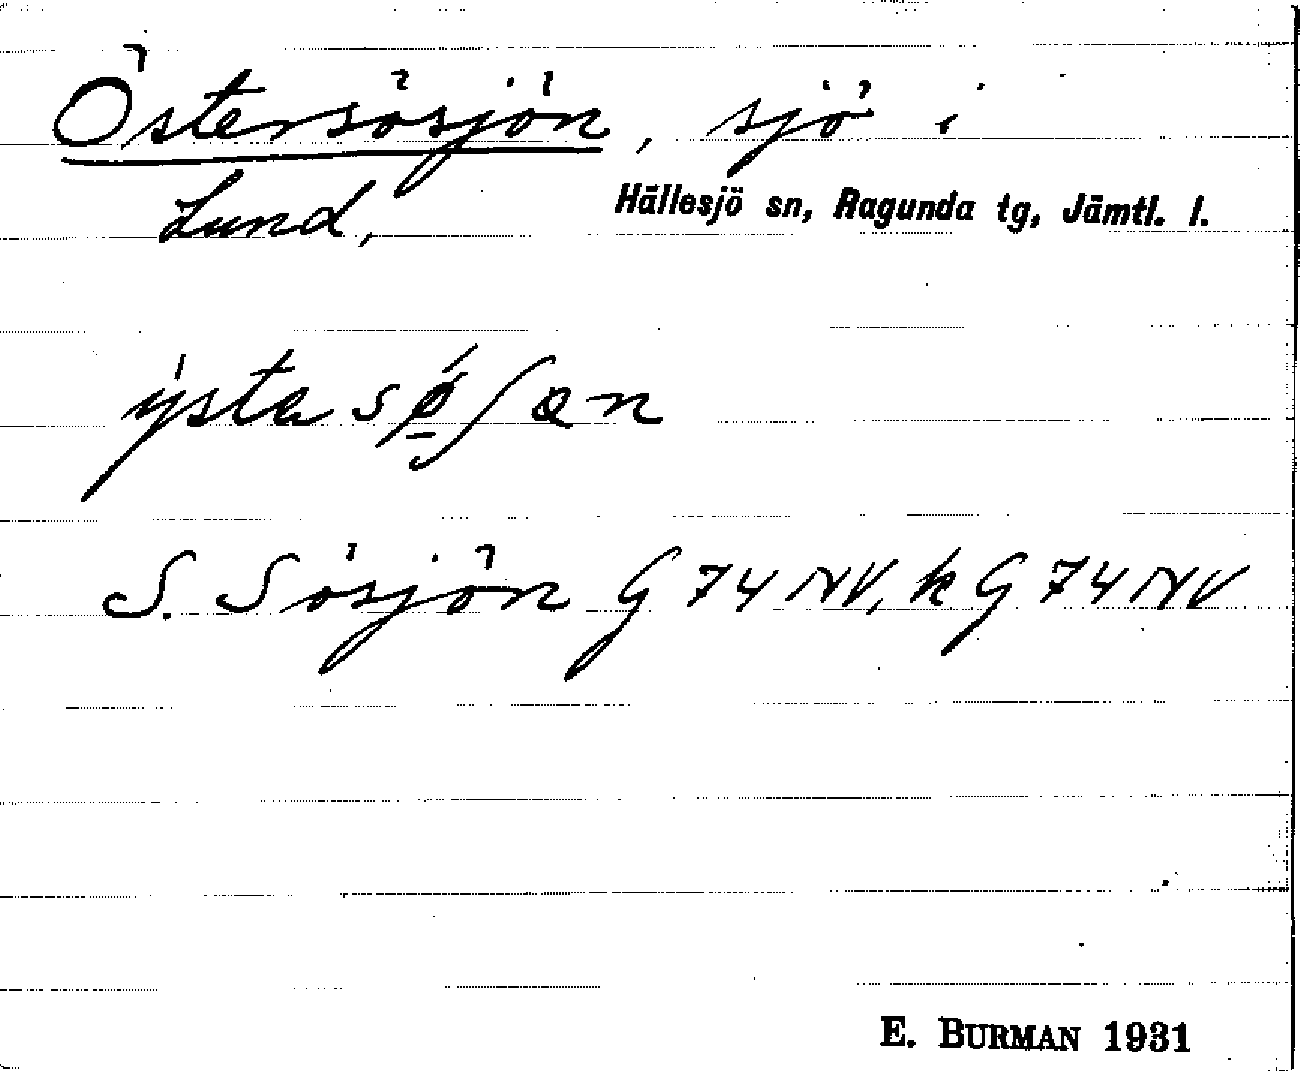 Östersösjön, sjö i
Lund, Hällesjö sn, Ragunda tg, Jämtl. l.
ýsta sǿʃan
S. Sösjön G 74 NV, k G 74 NV
E. BURMAN 1931